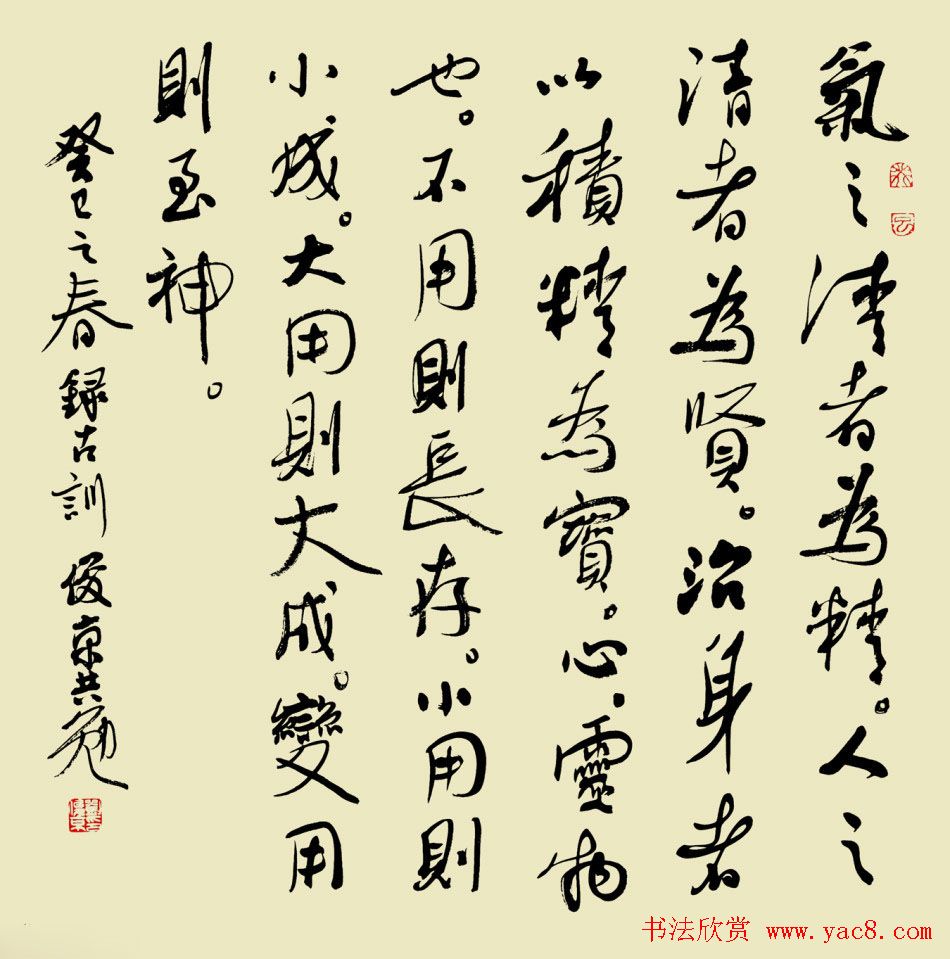 氣之清者為精。人之
清者為賢。治身者
以積精為寶。心，靈物
也。不用則長存。小用則
小成。大用則大成。變用
則至神。
癸巳之春錄古訓 俊京共勉
书法欣赏 www.yac8.com